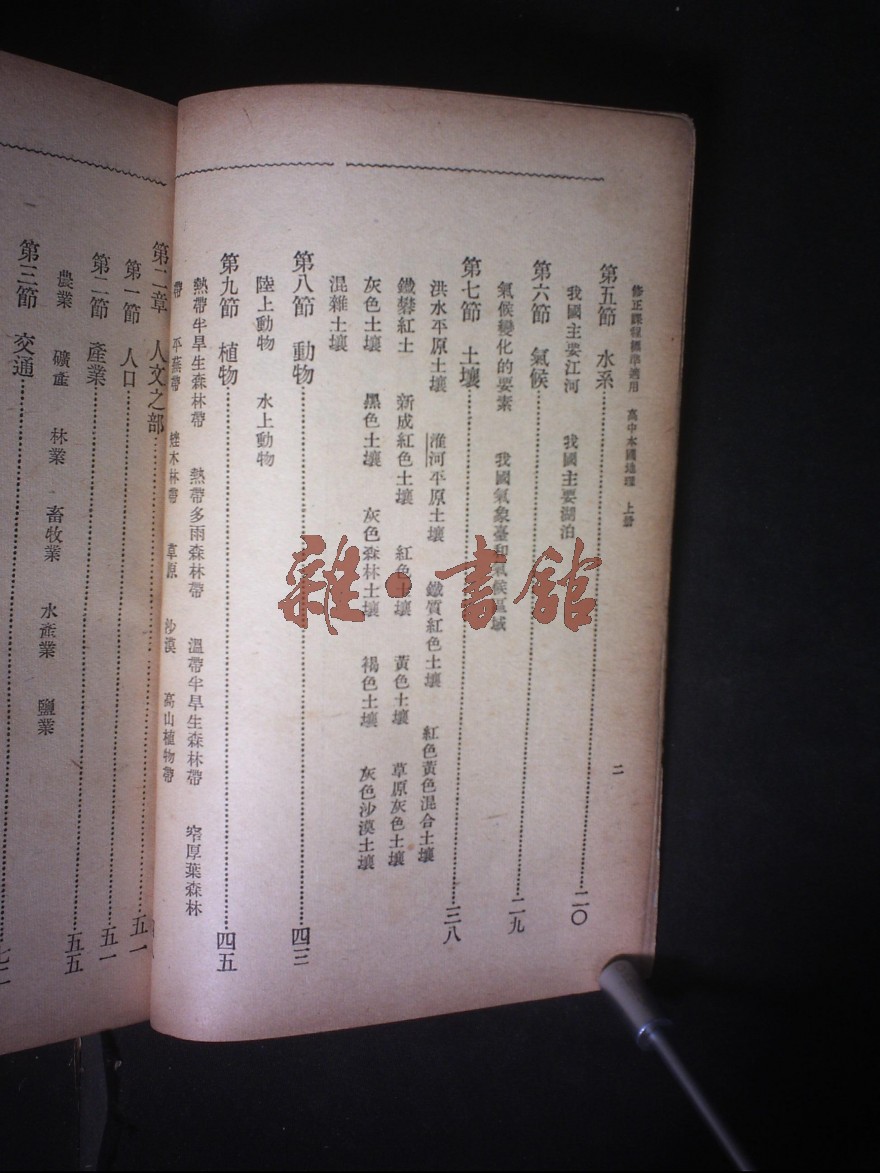 修正課程標準適用 高中本國地理 上册
二
第五節 水系……二〇
我國主要江河 我國主要湖泊
第六節 氣候……二九
氣候變化的要素 我國氣象臺和氣候區域
第七節 土壤……三八
洪水平原土壤 淮河平原土壤 鐵質紅色土壤 紅色黃色混合土壤
鐵礬紅土 新成紅色土壤 紅色土壤 黃色土壤 草原灰色土壤
灰色土壤 黑色土壤 灰色森林土壤 褐色土壤 灰色沙漠土壤
混雜土壤
第八節 動物……四三
陸上動物 水上動物
第九節 植物……四五
熱帶半旱生森林帶 熱帶多雨森林帶 溫帶半旱生森林帶 窄厚葉森林
帶 平蕪帶 矮木林帶 草原 沙漠 高山植物帶
第二章 人文之部……
第一節 人口……五一
第二節 產業……五一
五五
農業 礦產 林業 畜牧業 水產業 鹽業
第三節 交通……七二
雜·書館